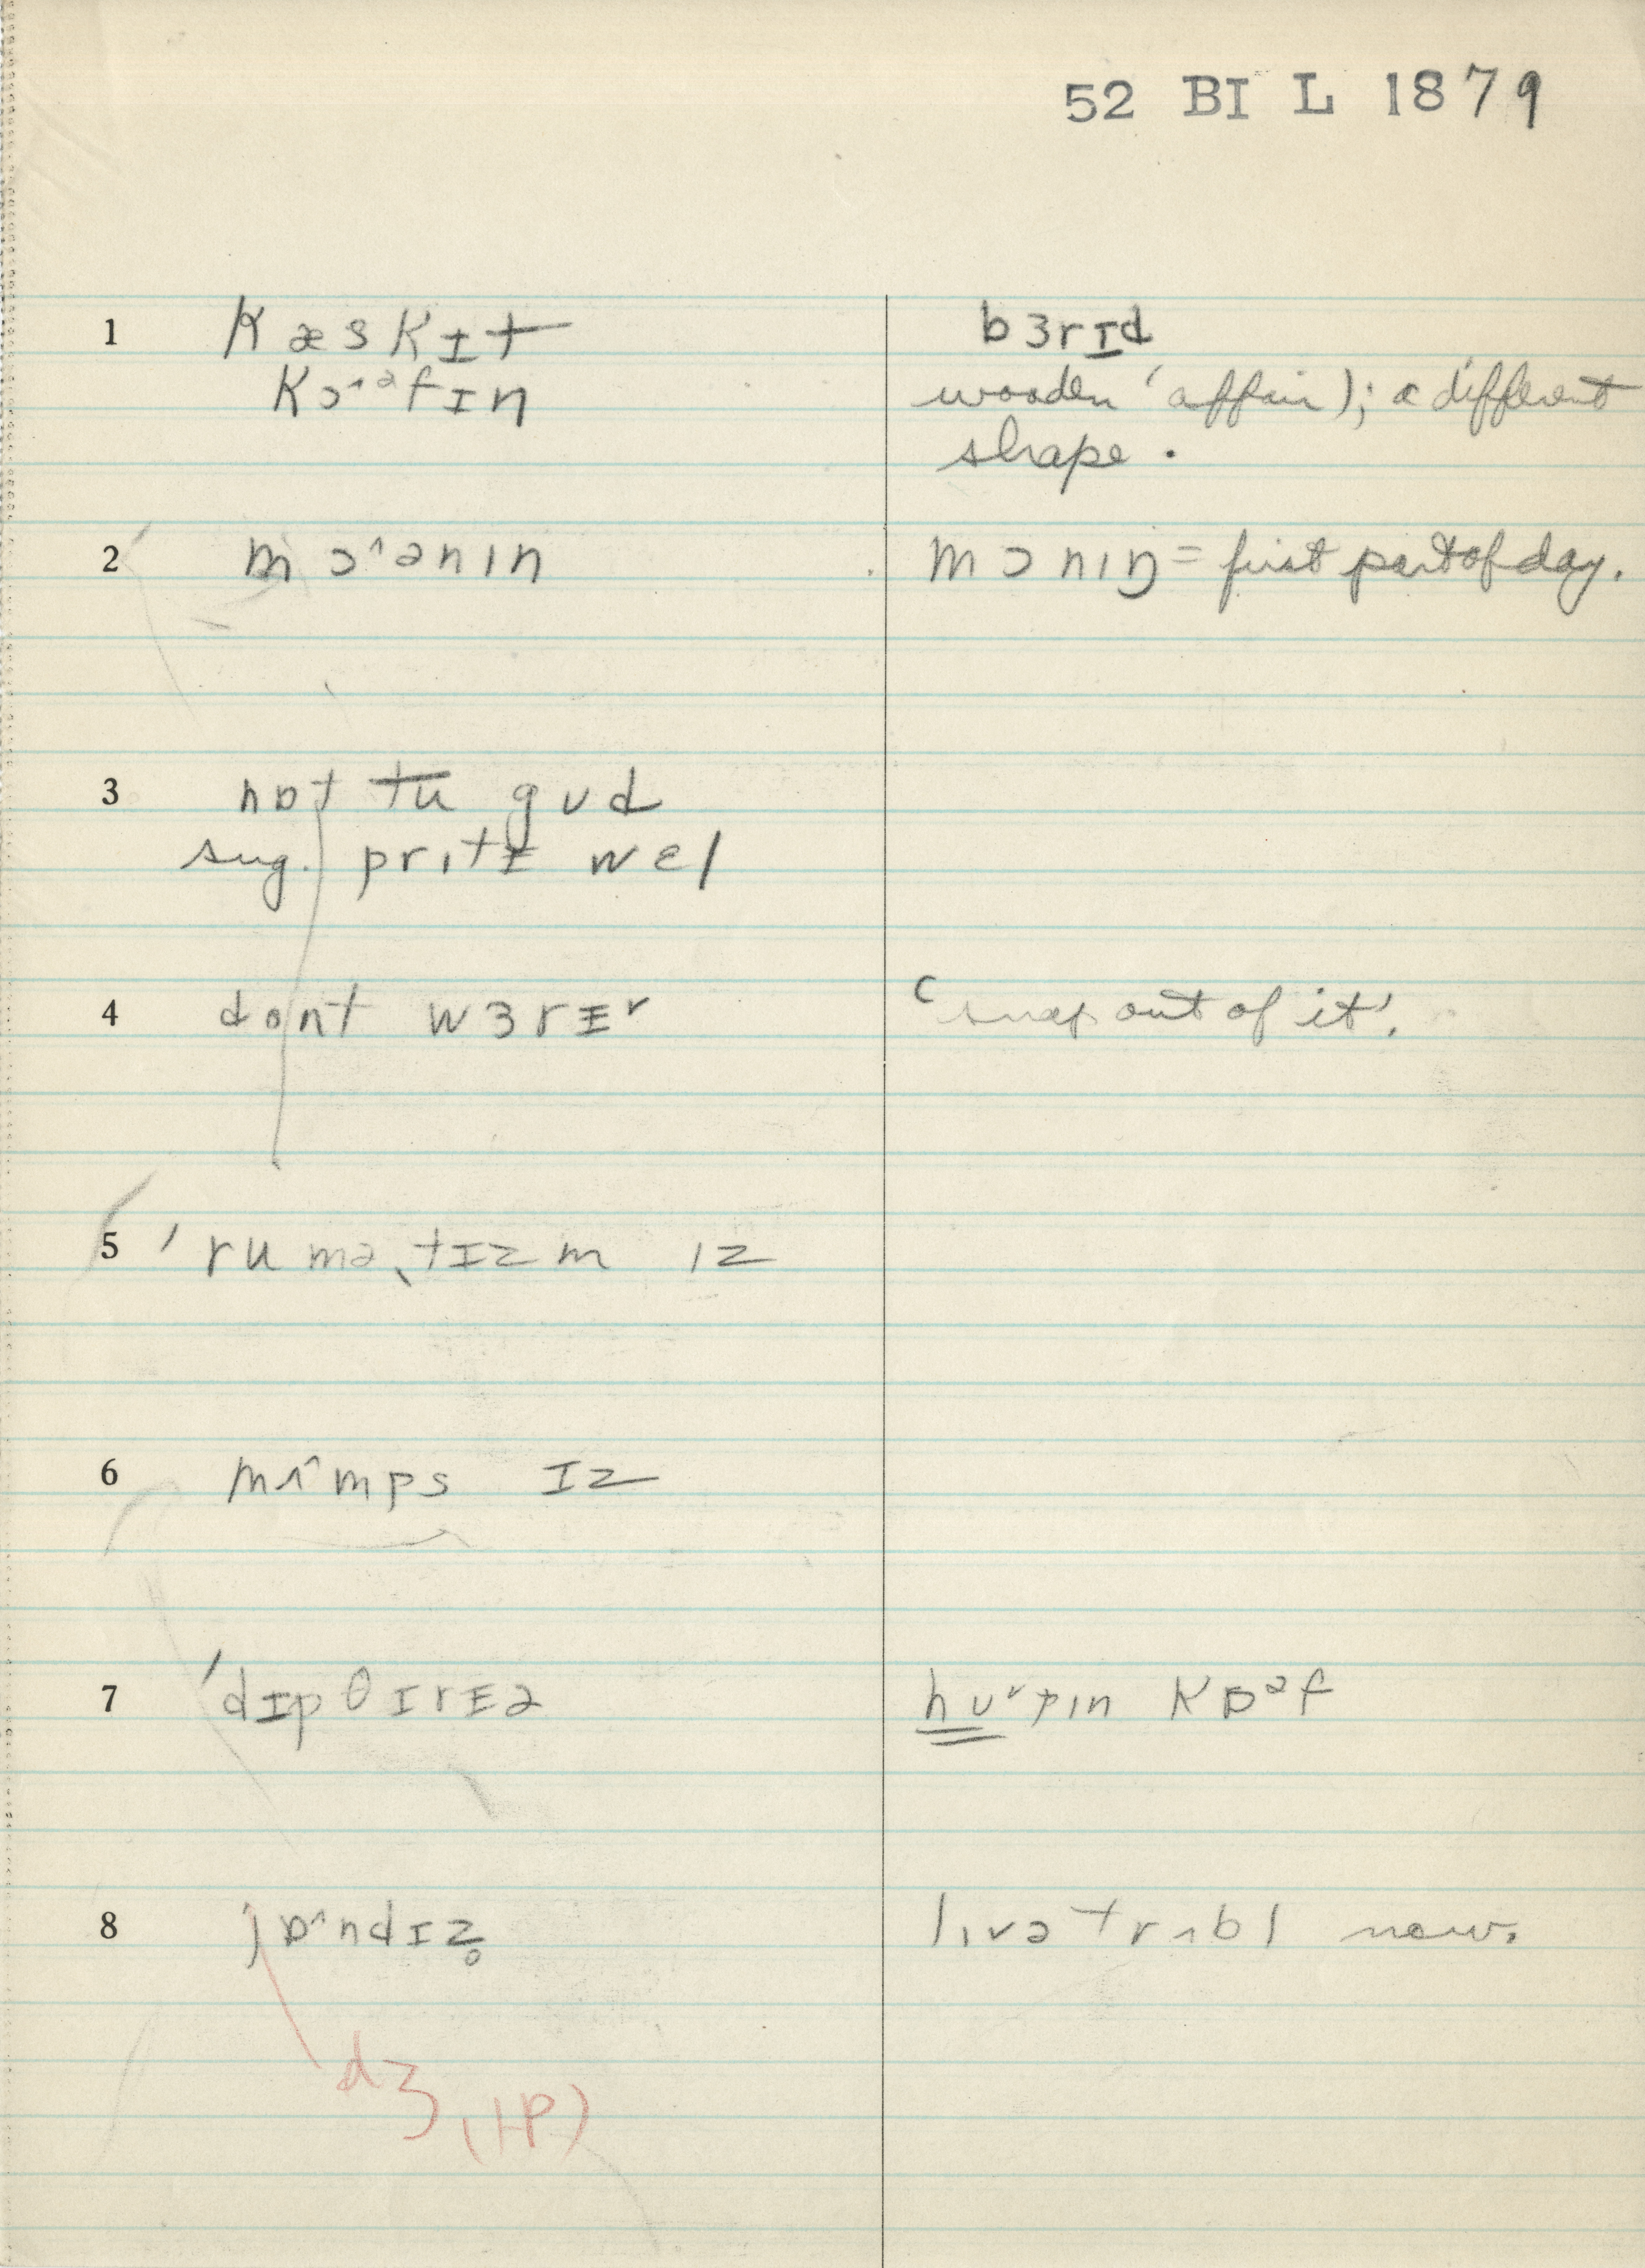 52 BI L 1879
1 kæskɪt bɜrɪd
kɔ˄ᵊfɪn wooden 'affair); a different
shape.
2 mɔ˄ənin mɔniŋ = first part of day.
3 nɒt tu gʊd
sug. pritɪ wɛl
4 dont wɜrɪ˅ 'snap out of it'.
5 ˈruməˌtɪzm iz
6 mʌ˄mps ɪz
7 ˈdɪpθɪrɪə hʊ˅pin kɒᵊf
8 jɒ˄ndɪz̥ livə trʌbl now.
dʒ (HP)